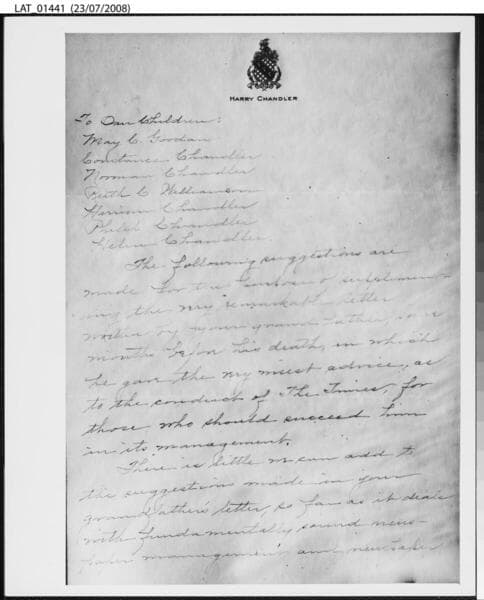 LAT_01441 (23/07/2008)
HARRY CHANDLER
To Our Children:
May C. Goodan
Constance Chandler
Norman Chandler
Ruth C Williamson
Harrison Chandler
Philip Chandler
Helen Chandler
The following suggestions are
made for the purpose of supplement-
ing the very remarkable letter
written by your grandfather,
months before his death, in which
he gave the very wisest advice, as
to the conduct of The Times, for
those who should succeed him
in its management.
There is little I can add to
the suggestions made in your
grandfathers letter, so far as it deals
with fundamentally sound news-
paper management and newspaper